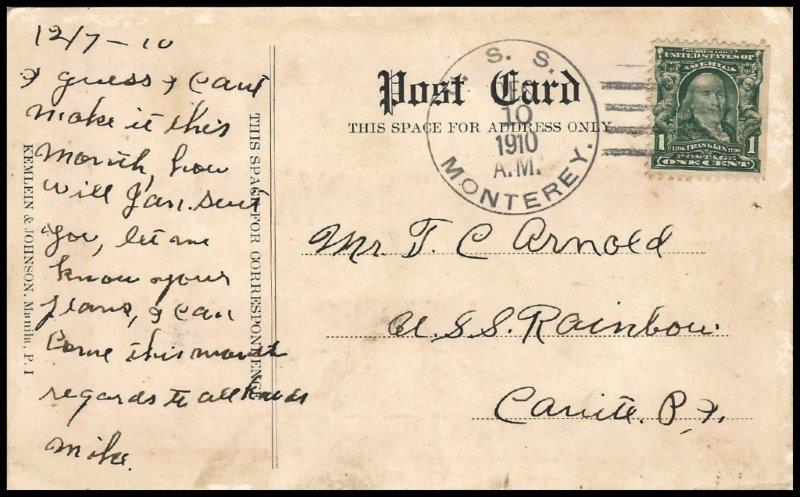 12/7-10
I guess I cant
make it this
month, how
will Jan. suit
you, let me
know your
plans, I can
come this month
regards to all hands
Mike.
THIS SPACE FOR CORRESPONDENCE
KEMLEIN & JOHNSON, Manila, P. I
Post Card
THIS SPACE FOR ADDRESS ONLY
U. S. S.
10
1910
A.M.
MONTEREY.
UNITED STATES OF
AMERICA
1 FRANKLIN 1
POSTAGE
ONE CENT
Mr. T. C Arnold
U.S.S. Rainbow.
Cavite. P. I.